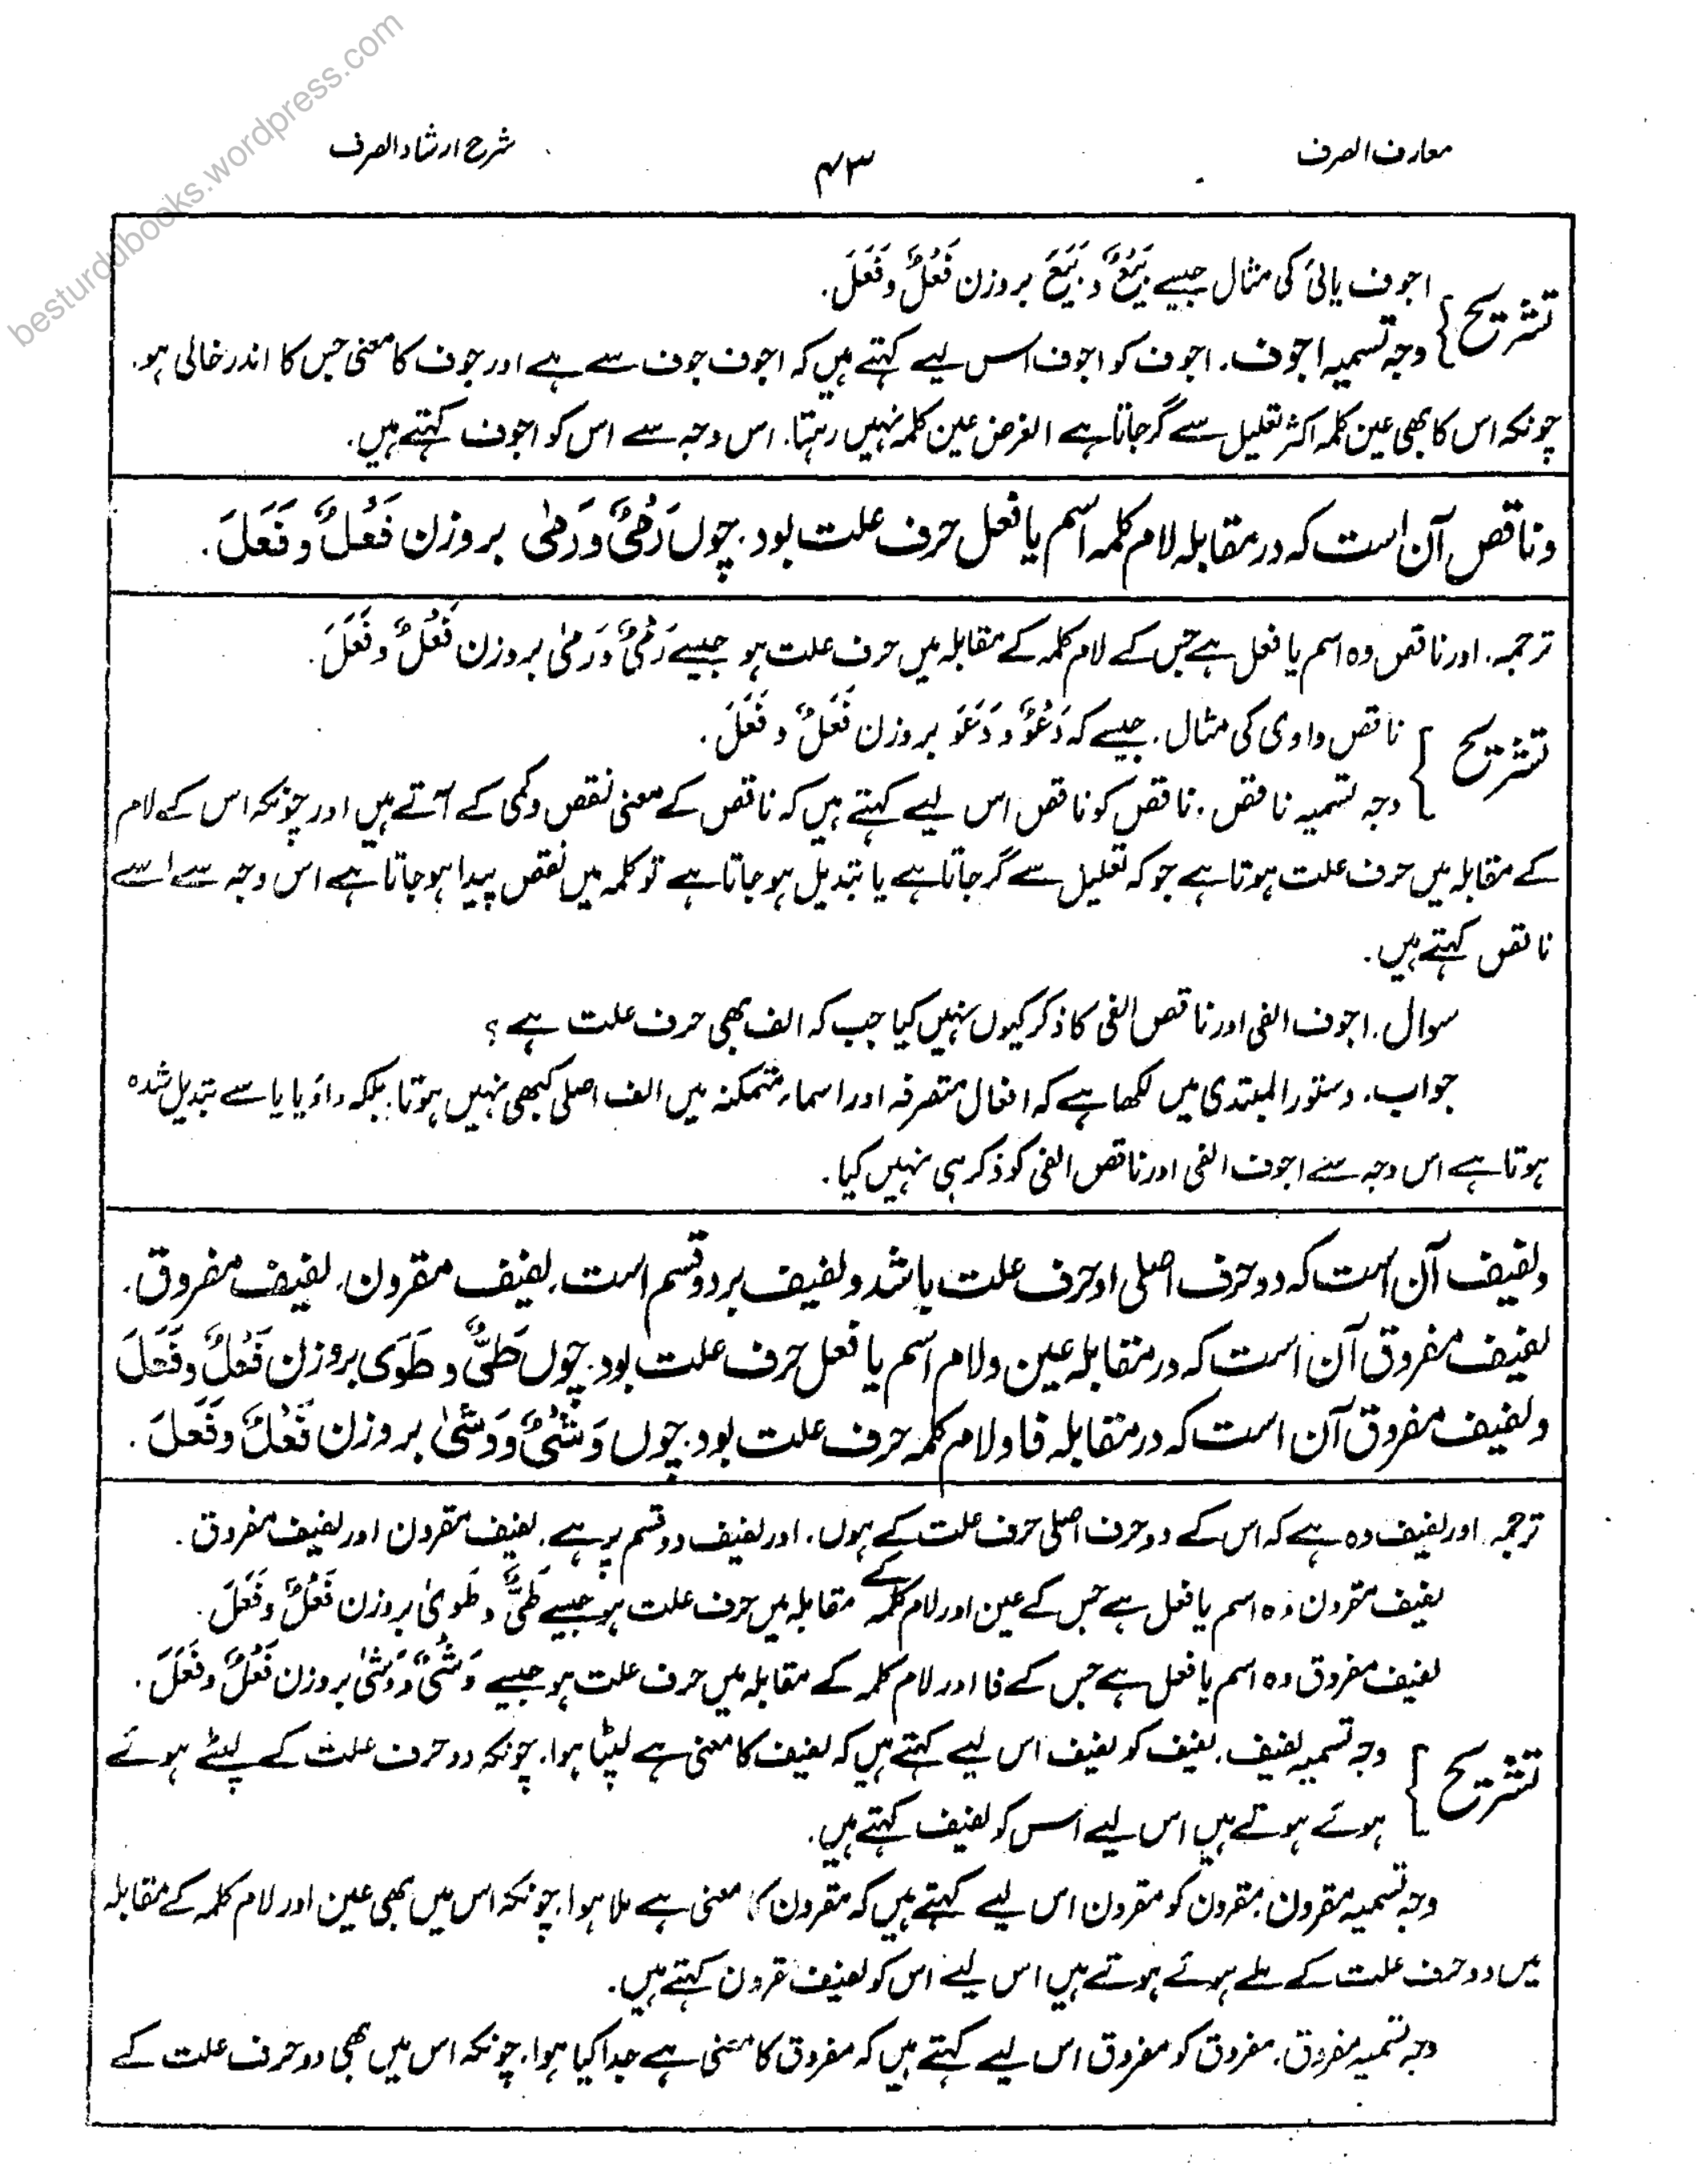 besturdubooks.wordpress.com
معارف الصرف
۴۳
شرح ارشاد الصرف
تشریح
اجوف یائی کی مثال جیسے بَیْعٌ و بَیَعَ بروزن فَعْلٌ و فَعَلَ.
وجہ تسمیہ اجوف. اجوف کو اجوف اس لیے کہتے ہیں کہ اجوف جوف سے ہے اور جوف کا معنی جس کا اندر خالی ہو.
چونکہ اس کا بھی عین کلمہ اکثر تعلیل سے گر جاتا ہے الغرض عین کلمہ نہیں رہتا. اس وجہ سے اس کو اجوف کہتے ہیں.
وناقص آن است کہ در مقابلہ لام کلمہ اسم یا فعل حرف علت بود. چوں رَمْیٌ و رَمٰی بروزن فَعْلٌ و فَعَلَ.
ترجمہ. اور ناقص وہ اسم یا فعل ہے جس کے لام کلمہ کے مقابلہ میں حرف علت ہو جیسے رَمْیٌ و رَمٰی بروزن فَعْلٌ و فَعَلَ.
تشریح
ناقص واوی کی مثال. جیسے کہ دَعْوٌ و دَعَوَ بروزن فَعْلٌ و فَعَلَ.
وجہ تسمیہ ناقص. ناقص کو ناقص اس لیے کہتے ہیں کہ ناقص کے معنی نقص و کمی کے آتے ہیں اور چونکہ اس کے لام
کے مقابلہ میں حرف علت ہوتا ہے جو کہ تعلیل سے گر جاتا ہے یا تبدیل ہو جاتا ہے تو کلمہ میں نقص پیدا ہو جاتا ہے اس وجہ سے اسے
ناقص کہتے ہیں.
سوال. اجوف الفی اور ناقص الفی کا ذکر کیوں نہیں کیا جب کہ الف بھی حرف علت ہے؟
جواب. دستور المبتدی میں لکھا ہے کہ افعال متصرفہ اور اسماء متمکنہ میں الف اصلی کبھی نہیں ہوتا. بلکہ واؤ یا یا سے تبدیل شدہ
ہوتا ہے اس وجہ سے اجوف الفی اور ناقص الفی کو ذکر ہی نہیں کیا.
ولفیف آن است کہ دو حرف اصلی او حرف علت باشد ولفیف بر دو قسم است. لفیف مقرون. لفیف مفروق.
لفیف مفروق آن است کہ در مقابلہ عین ولام اسم یا فعل حرف علت بود. چوں طَیٌّ و طَوَی بروزن فَعْلٌ و فَعَلَ
ولفیف مفروق آن است کہ در مقابلہ فا ولام کلمہ حرف علت بود. چوں وَشْیٌ و وَشٰی بروزن فَعْلٌ و فَعَلَ.
ترجمہ. اور لفیف وہ ہے کہ اس کے دو حرف اصلی حرف علت کے ہوں. اور لفیف دو قسم پر ہے. لفیف مقرون اور لفیف مفروق.
لفیف مقرون وہ اسم یا فعل ہے جس کے عین اور لام کلمہ کے مقابلہ میں حرف علت ہو جیسے طَیٌّ و طَویٰ بروزن فَعْلٌ و فَعَلَ.
لفیف مفروق وہ اسم یا فعل ہے جس کے فا اور لام کلمہ کے مقابلہ میں حرف علت ہو جیسے وَشْیٌ و وَشٰی بروزن فَعْلٌ و فَعَلَ.
تشریح
وجہ تسمیہ لفیف. لفیف کو لفیف اس لیے کہتے ہیں کہ لفیف کا معنی ہے لپٹا ہوا. چونکہ دو حرف علت کے لپٹے ہوئے
ہوئے ہوتے ہیں اس لیے اس کو لفیف کہتے ہیں.
وجہ تسمیہ مقرون. مقرون کو مقرون اس لیے کہتے ہیں کہ مقرون کا معنی ہے ملا ہوا. چونکہ اس میں بھی عین اور لام کلمہ کے مقابلہ
میں دو حرف علت کے ملے ہوئے ہوتے ہیں اس لیے اس کو لفیف مقرون کہتے ہیں.
وجہ تسمیہ مفروق. مفروق کو مفروق اس لیے کہتے ہیں کہ مفروق کا معنی ہے جدا کیا ہوا. چونکہ اس میں بھی دو حرف علت کے